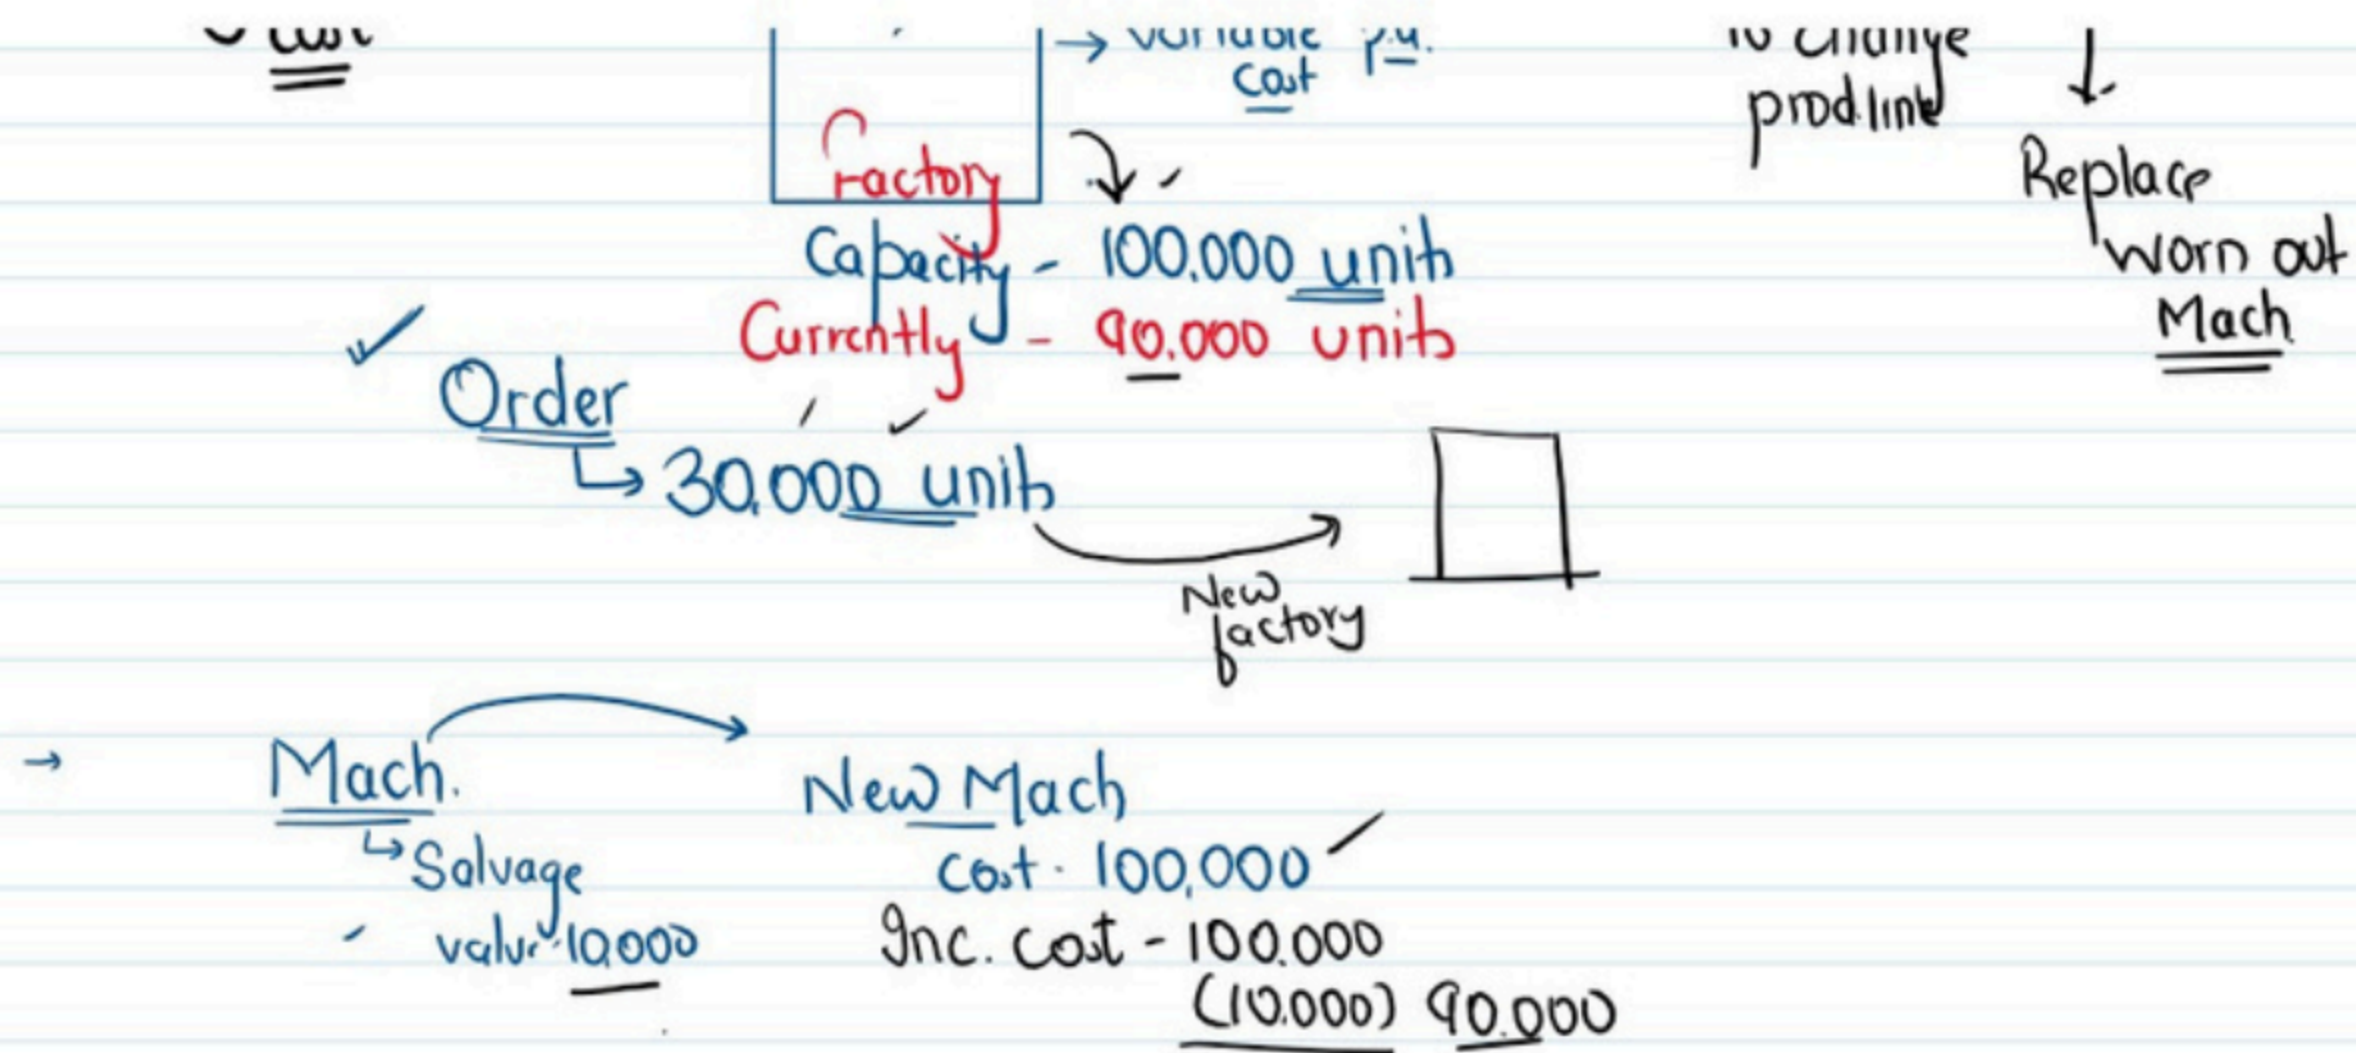 → variable p.u.
cost
to change
prod.line
Factory
Replace
worn out
Mach.
Capacity - 100,000 units
Currently - 90,000 units
Order
↳ 30,000 units
New
factory
→ Mach.
New Mach
↳ Salvage
value 10,000
cost - 100,000
Inc. cost - 100,000
(10,000) 90,000